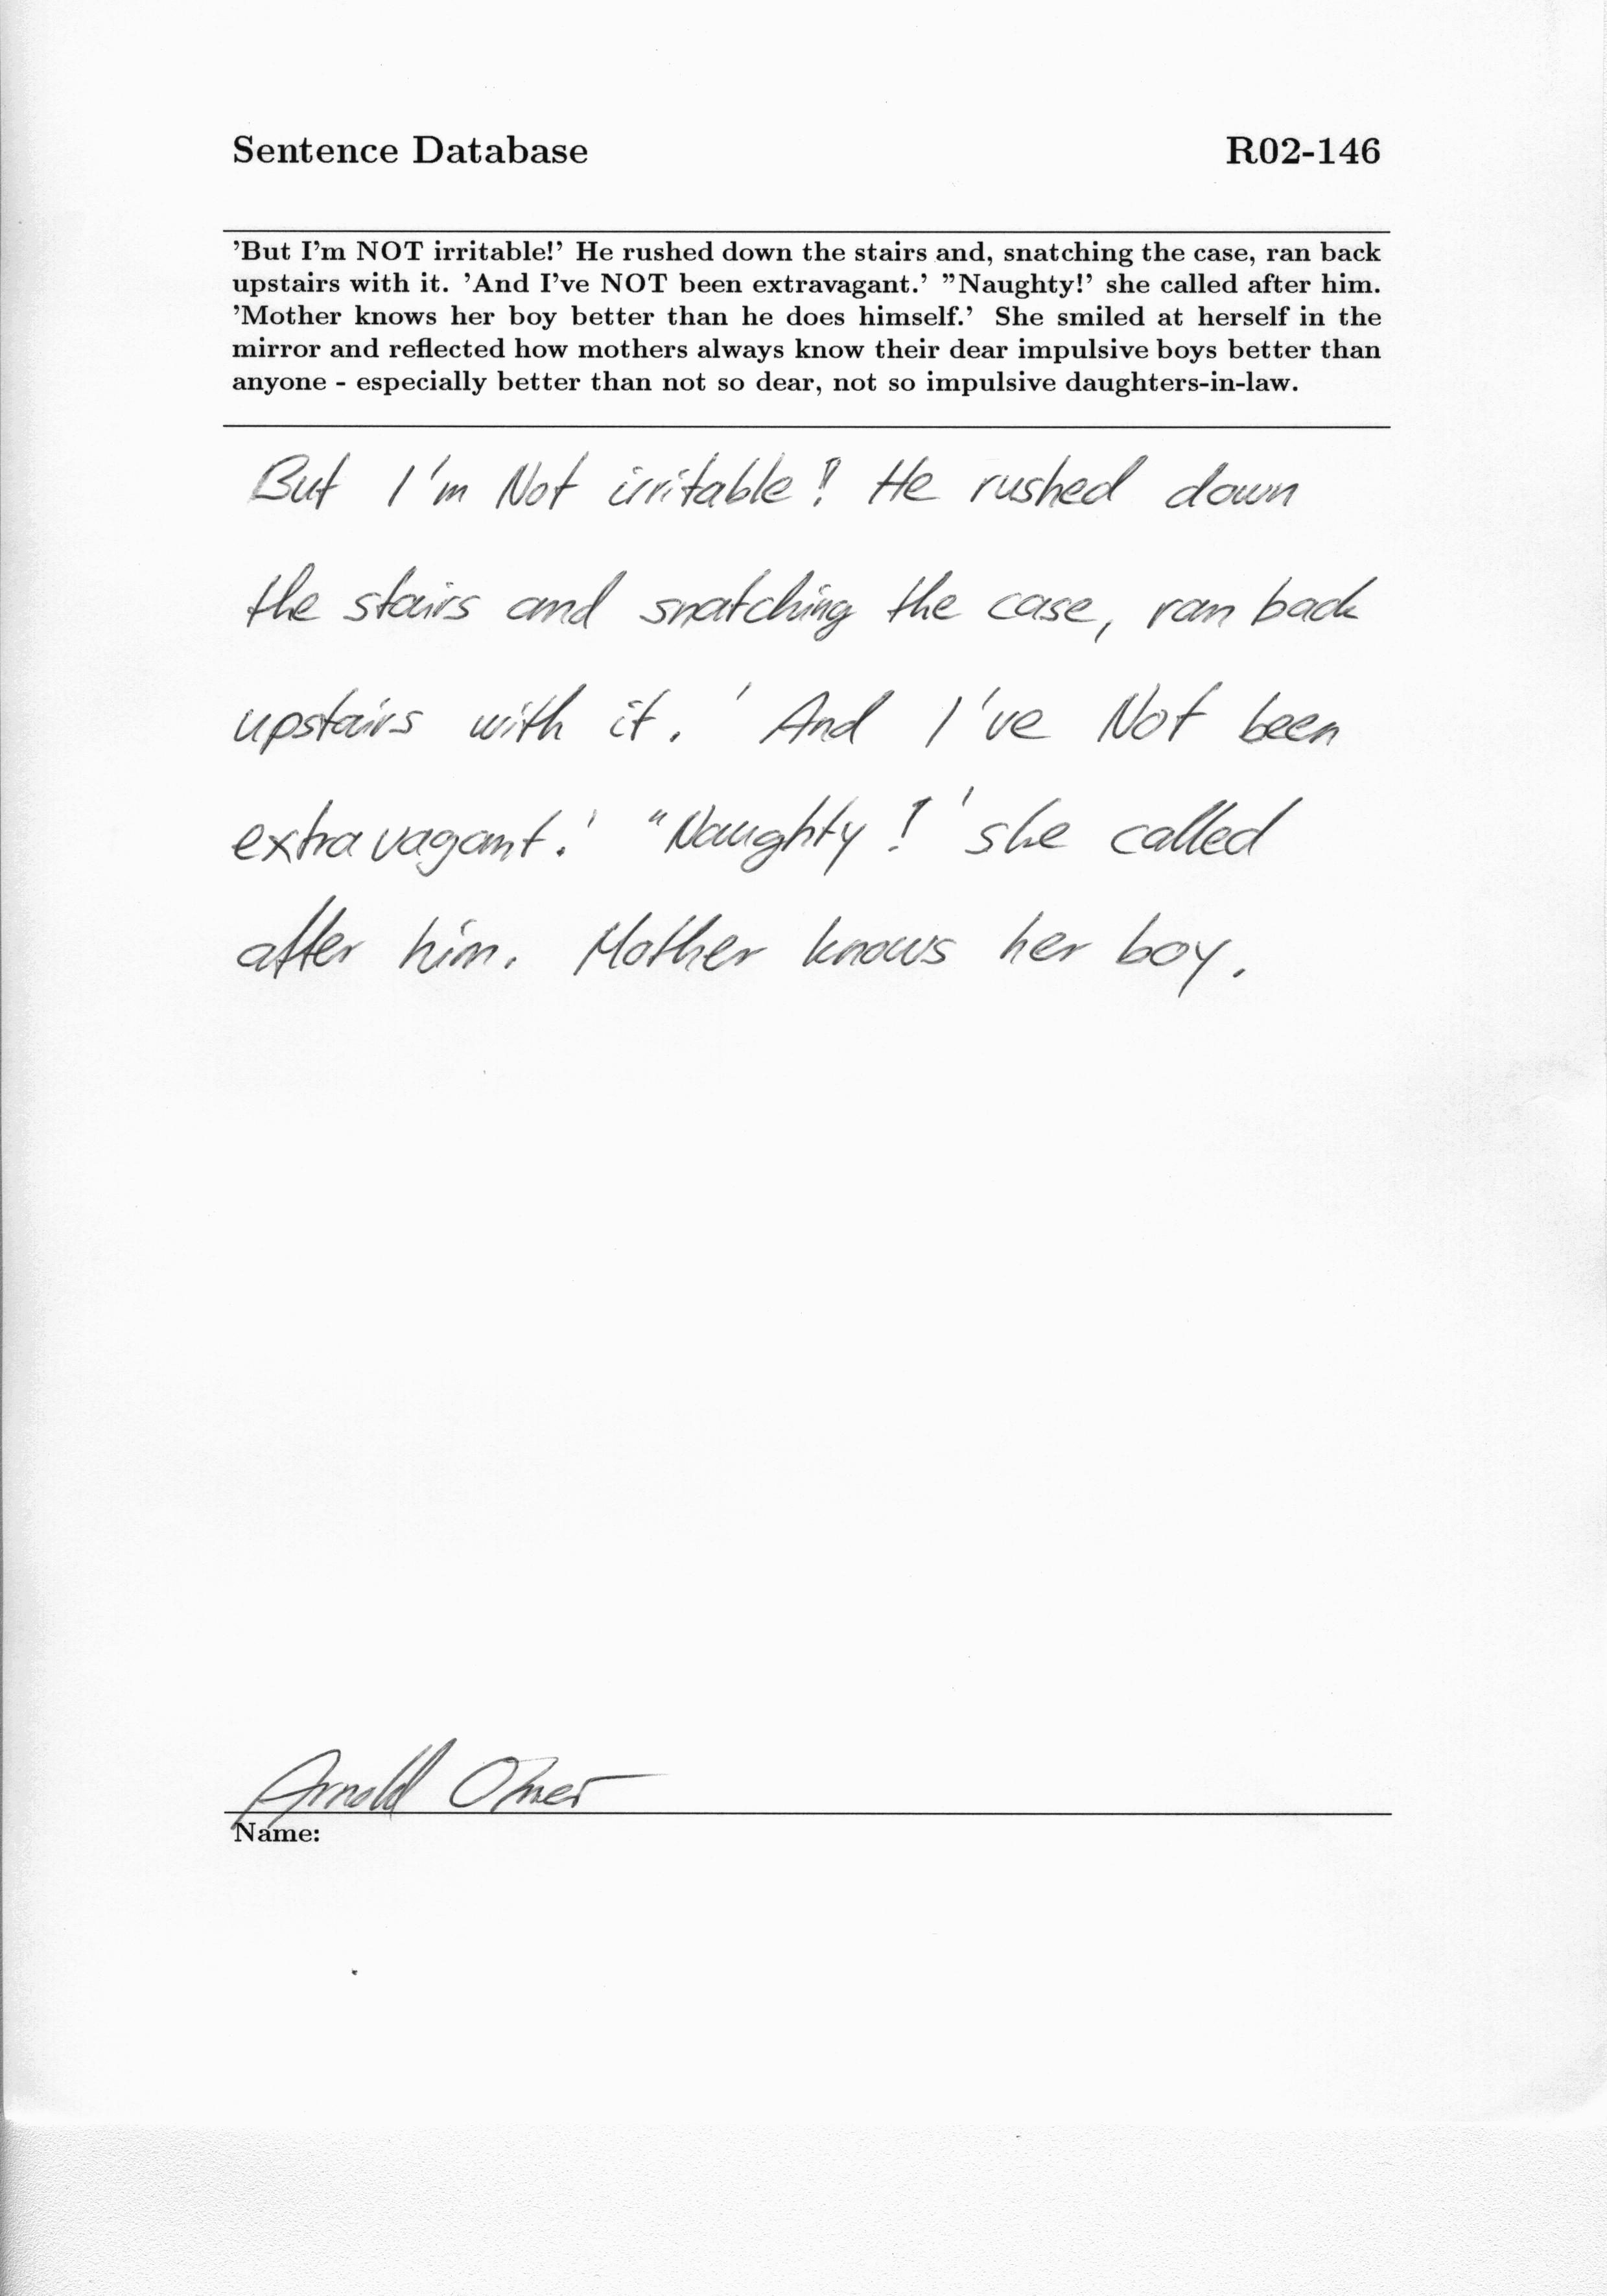 Sentence Database R02-146
'But I'm NOT irritable!' He rushed down the stairs and, snatching the case, ran back
upstairs with it. 'And I've NOT been extravagant.' "Naughty!' she called after him.
'Mother knows her boy better than he does himself.' She smiled at herself in the
mirror and reflected how mothers always know their dear impulsive boys better than
anyone - especially better than not so dear, not so impulsive daughters-in-law.
But I'm Not irritable! He rushed down
the stairs and snatching the case, ran back
upstairs with it. ' And I've Not been
extravagant.' "Naughty!' she called
after him. Mother knows her boy.
Arnold
Name: